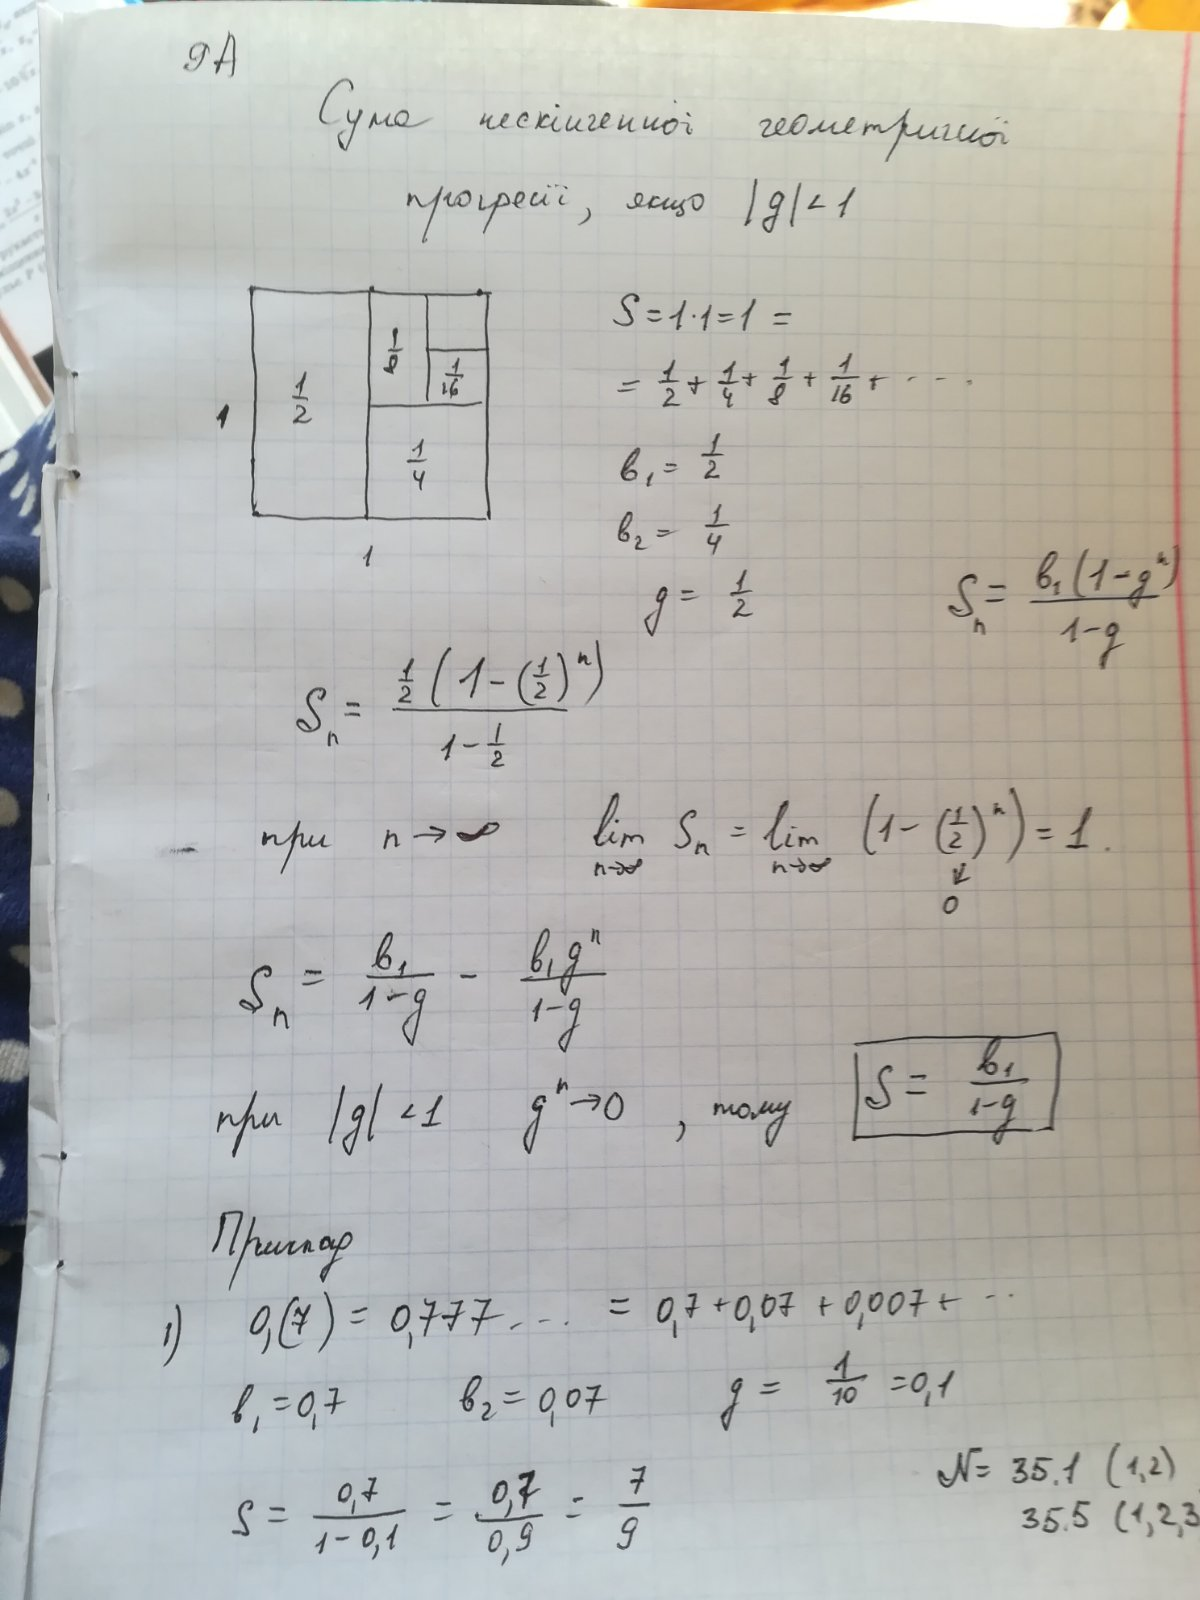 9А
Сума нескінченної геометричної
прогресії, якщо |g| < 1
S = 1·1 = 1 =
= 1/2 + 1/4 + 1/8 + 1/16 + ...
1/2 1/8 1/16
1
1/4
1
b₁ = 1/2
b₂ = 1/4
g = 1/2
Sₙ = b₁(1-gⁿ)/(1-g)
Sₙ = 1/2(1-(1/2)ⁿ)/(1-1/2)
при n→∞ lim n→∞ Sₙ = lim n→∞ (1-(1/2)ⁿ) = 1.
↓
0
Sₙ = b₁/(1-g) - b₁gⁿ/(1-g)
при |g| < 1 gⁿ→0, тому S = b₁/(1-g)
Приклад
1) 0,(7) = 0,777... = 0,7+0,07+0,007+...
b₁ = 0,7 b₂ = 0,07 g = 1/10 = 0,1
S = 0,7/(1-0,1) = 0,7/0,9 = 7/9
N= 35.1 (1,2)
35.5 (1,2,3